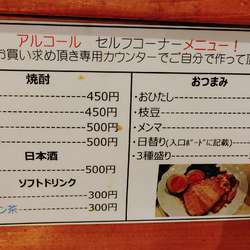 アルコール セルフコーナーメニュー!
お買い求め頂き専用カウンターでご自分で作って
焼酎
450円
450円
500円
500円
日本酒
500円
ソフトドリンク
300円
ン茶 300円
おつまみ
・おひたし
・枝豆
・メンマ
・日替り(入口ﾎﾞｰﾄﾞに記載)
・3種盛り